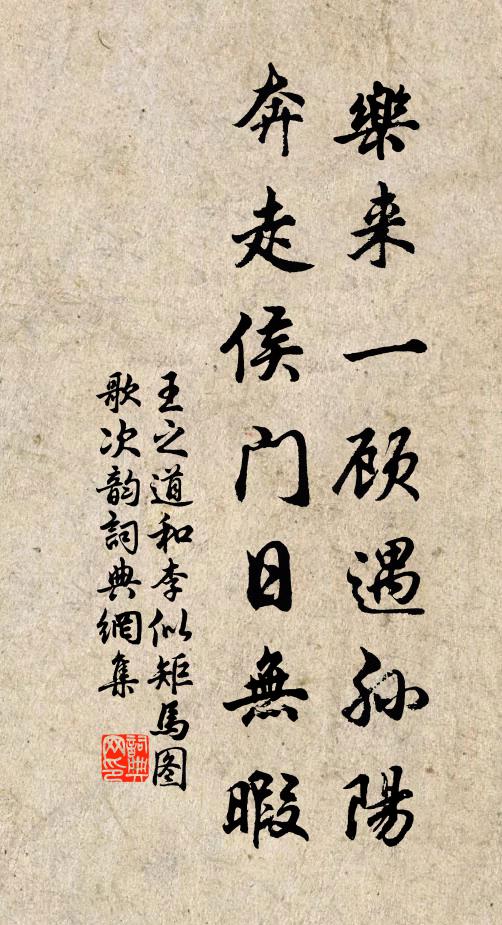 樂来一顾遇孙陽
奔走侯门日無暇
王之道和李似矩馬图
歌次韵詞典網集
詞典
网印